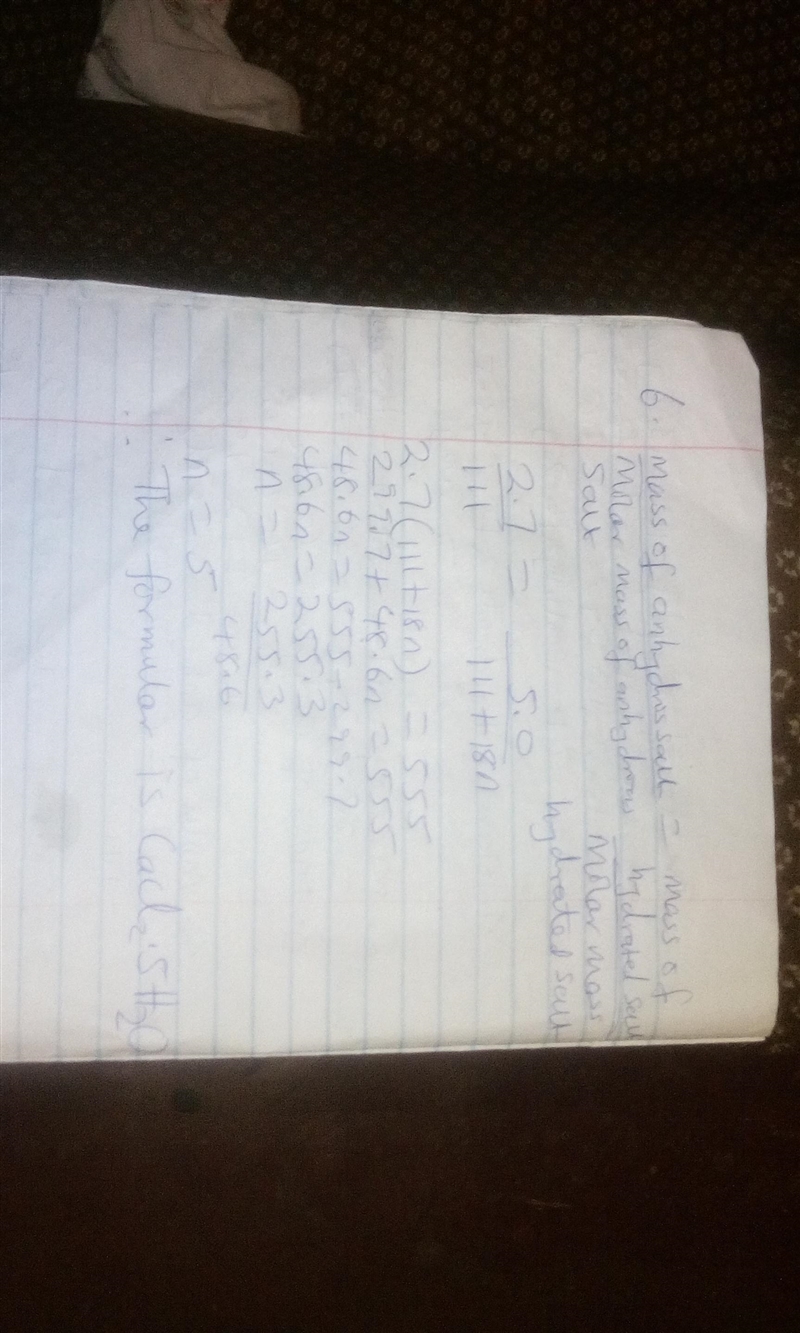 6. Mass of anhydrous salt = mass of
Molar mass of anhydrous hydrated salt
salt Molar mass
hydrated salt
2.7 = 5.0
111 111+18n
2.7(111+18n) = 555
299.7+48.6n = 555
48.6n = 555-299.7
48.6n = 255.3
n = 255.3
48.6
n = 5
∴ The formular is CaCl₂.5H₂O